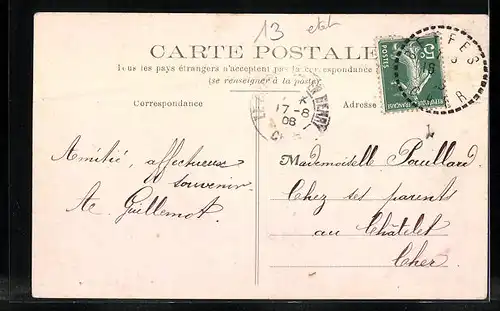 13
CARTE POSTALE
Tous les pays étrangers n'acceptent pas la correspondance
(se renseigner à la poste)
Correspondance
Adresse
17-8
08
5c
POSTES
Amitié, affectueux
souvenir
Guillemot.
Mademoiselle Pouillard
Chez ses parents
au Châtelet
Cher